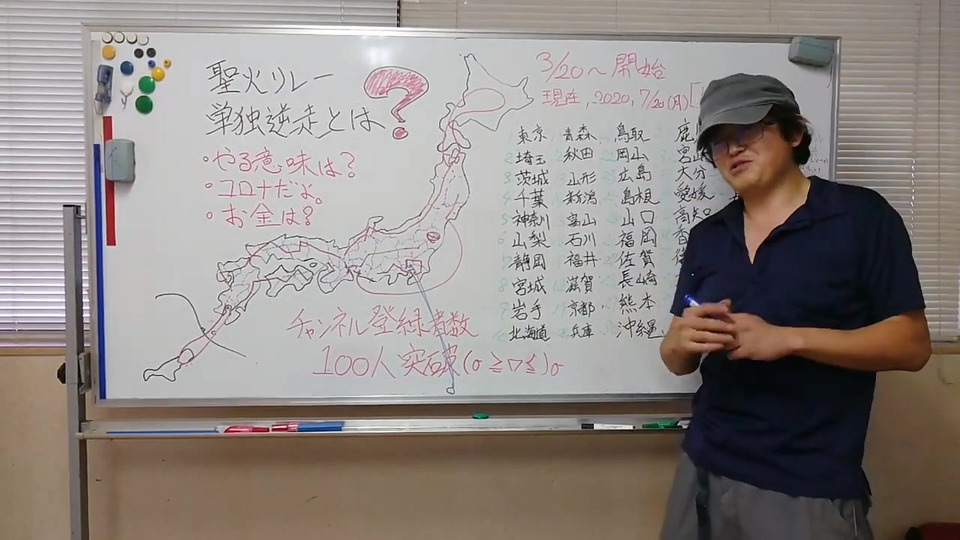 聖火リレー
単独逆走とは?
・やる意味は?
・コロナだよ。
・お金は?
3/20~開始
現在,2020,7/20(月)
東京 青森 鳥取
埼玉 秋田 岡山
茨城 山形 広島 大分
千葉 新潟 島根 愛媛
神奈川 富山 山口 高知
山梨 石川 福岡
静岡 福井 佐賀
宮城 滋賀 長崎
岩手 京都 熊本
北海道 兵庫 沖縄
チャンネル登録者数
100人突破(σ≧▽≦)σ